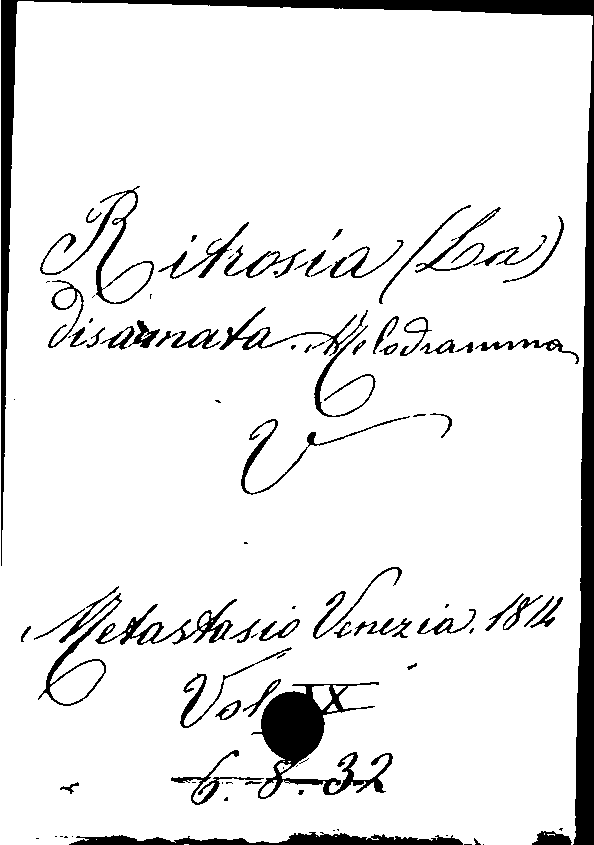 Ritrosia (La)
disarmata. Melodramma
V
Metastasio Venezia. 1814
Vol. IX
6. 8. 32